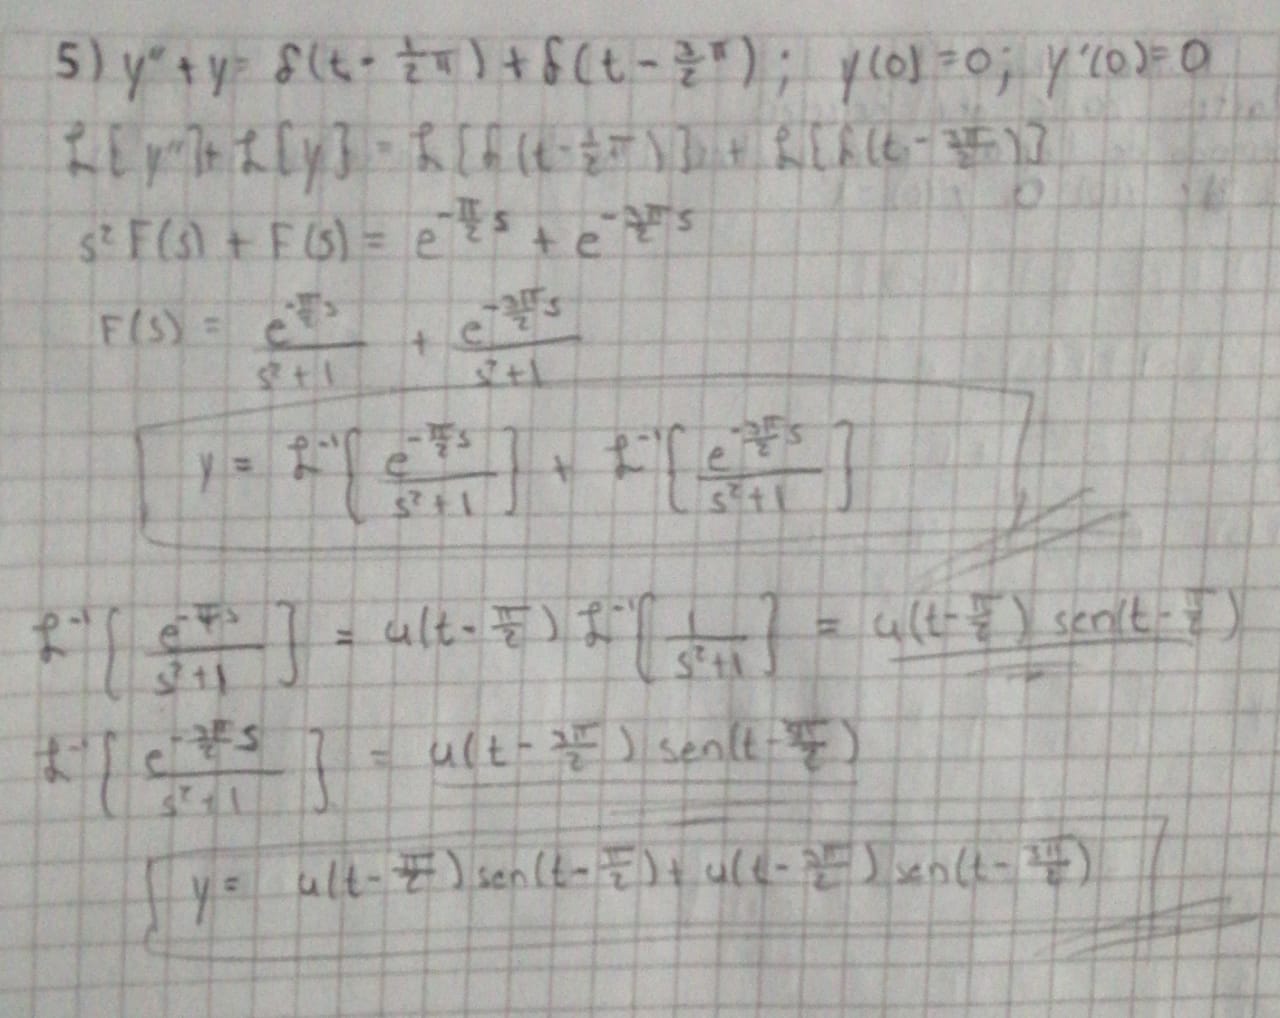 5) y'' + y = δ(t - 1/2 π) + δ(t - 3/2 π); y(0) = 0; y'(0) = 0
ℒ[y''] + ℒ[y] = ℒ[δ(t - 1/2 π)] + ℒ[δ(t - 3π/2)]
s² F(s) + F(s) = e^(-π/2 s) + e^(-3π/2 s)
F(s) = e^(-π/2 s)/(s²+1) + e^(-3π/2 s)/(s²+1)
y = ℒ⁻¹[e^(-π/2 s)/(s²+1)] + ℒ⁻¹[e^(-3π/2 s)/(s²+1)]
ℒ⁻¹[e^(-π/2 s)/(s²+1)] = u(t - π/2) ℒ⁻¹[1/(s²+1)] = u(t - π/2) sen(t - π/2)
ℒ⁻¹[e^(-3π/2 s)/(s²+1)] = u(t - 3π/2) sen(t - 3π/2)
y = u(t - π/2) sen(t - π/2) + u(t - 3π/2) sen(t - 3π/2)